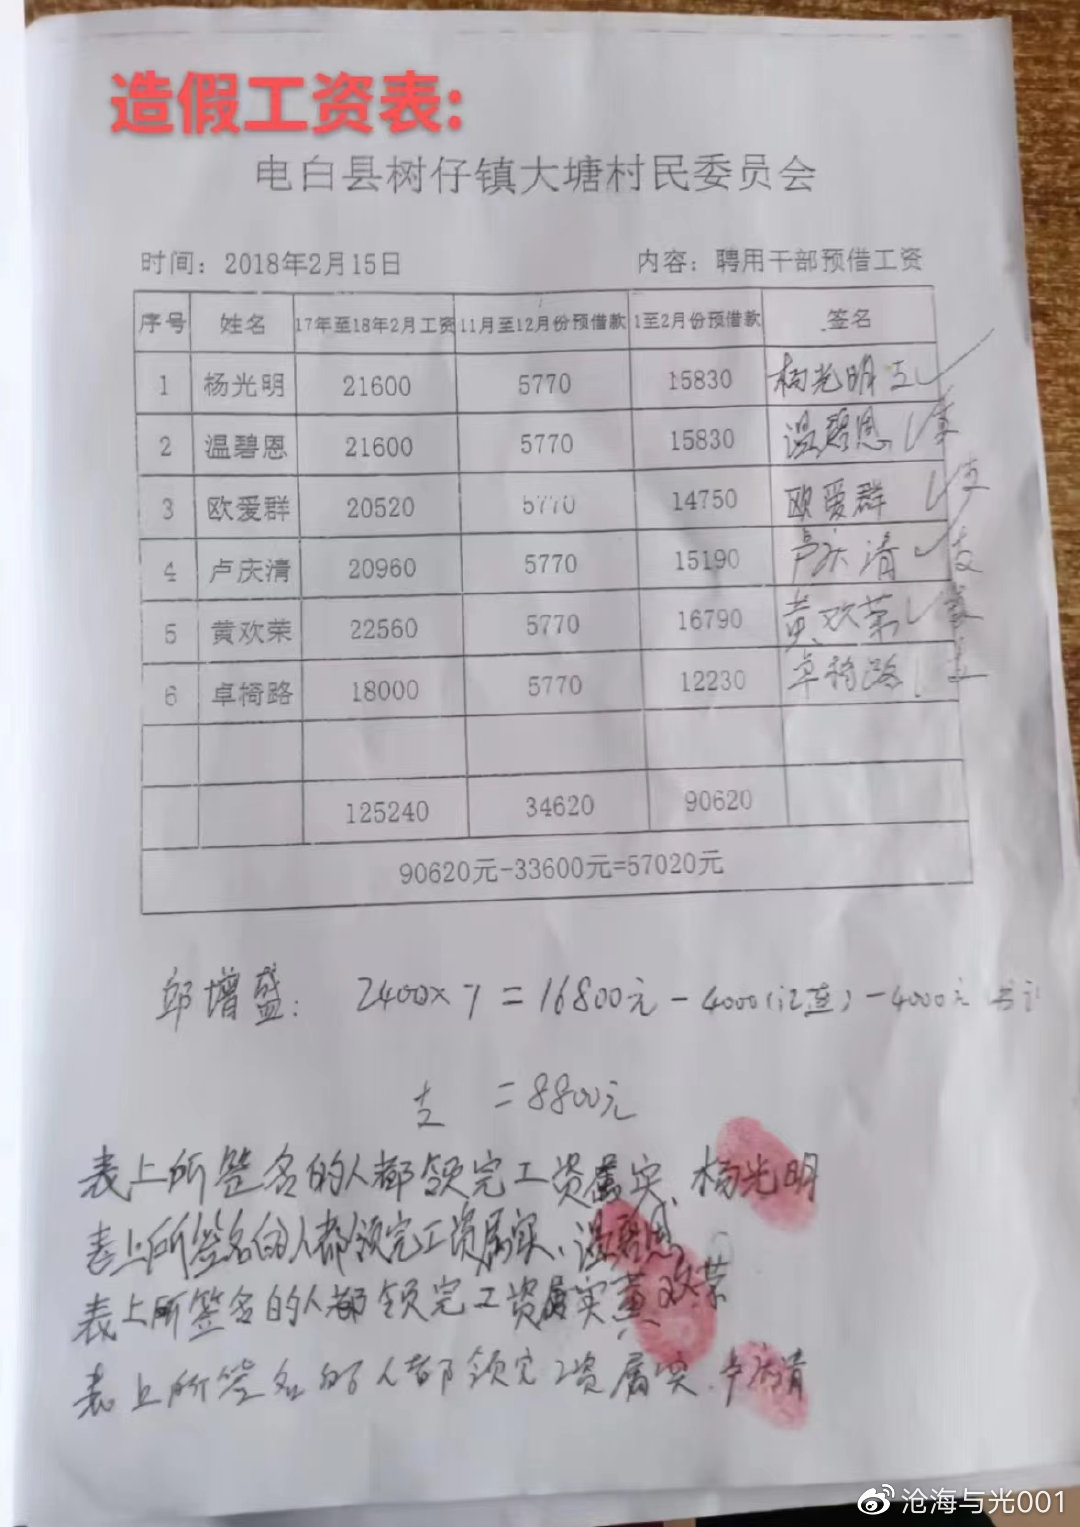 造假工资表:
电白县树仔镇大塘村民委员会
时间：2018年2月15日 内容：聘用干部预借工资
序号 姓名 17年至18年2月工资 11月至12月份预借款 1至2月份预借款 签名
1 杨光明 21600 5770 15830 杨光明 支
2 温碧恩 21600 5770 15830 温碧恩
3 欧爱群 20520 5770 14750 欧爱群 支
4 卢庆清 20960 5770 15190 卢庆清 支
5 黄欢荣 22560 5770 16790 黄欢荣
6 卓椅路 18000 5770 12230 卓椅路 支
125240 34620 90620
90620元-33600元=57020元
邱增盛: 2400×7=16800元-4000()-4000元
支 =8800元
表上所签名的人都领完工资属实、杨光明
表上所签名的人都领完工资属实、温碧恩
表上所签名的人都领完工资属实黄欢荣
表上所签名的人都领完工资属实.卢庆清
沧海与光001